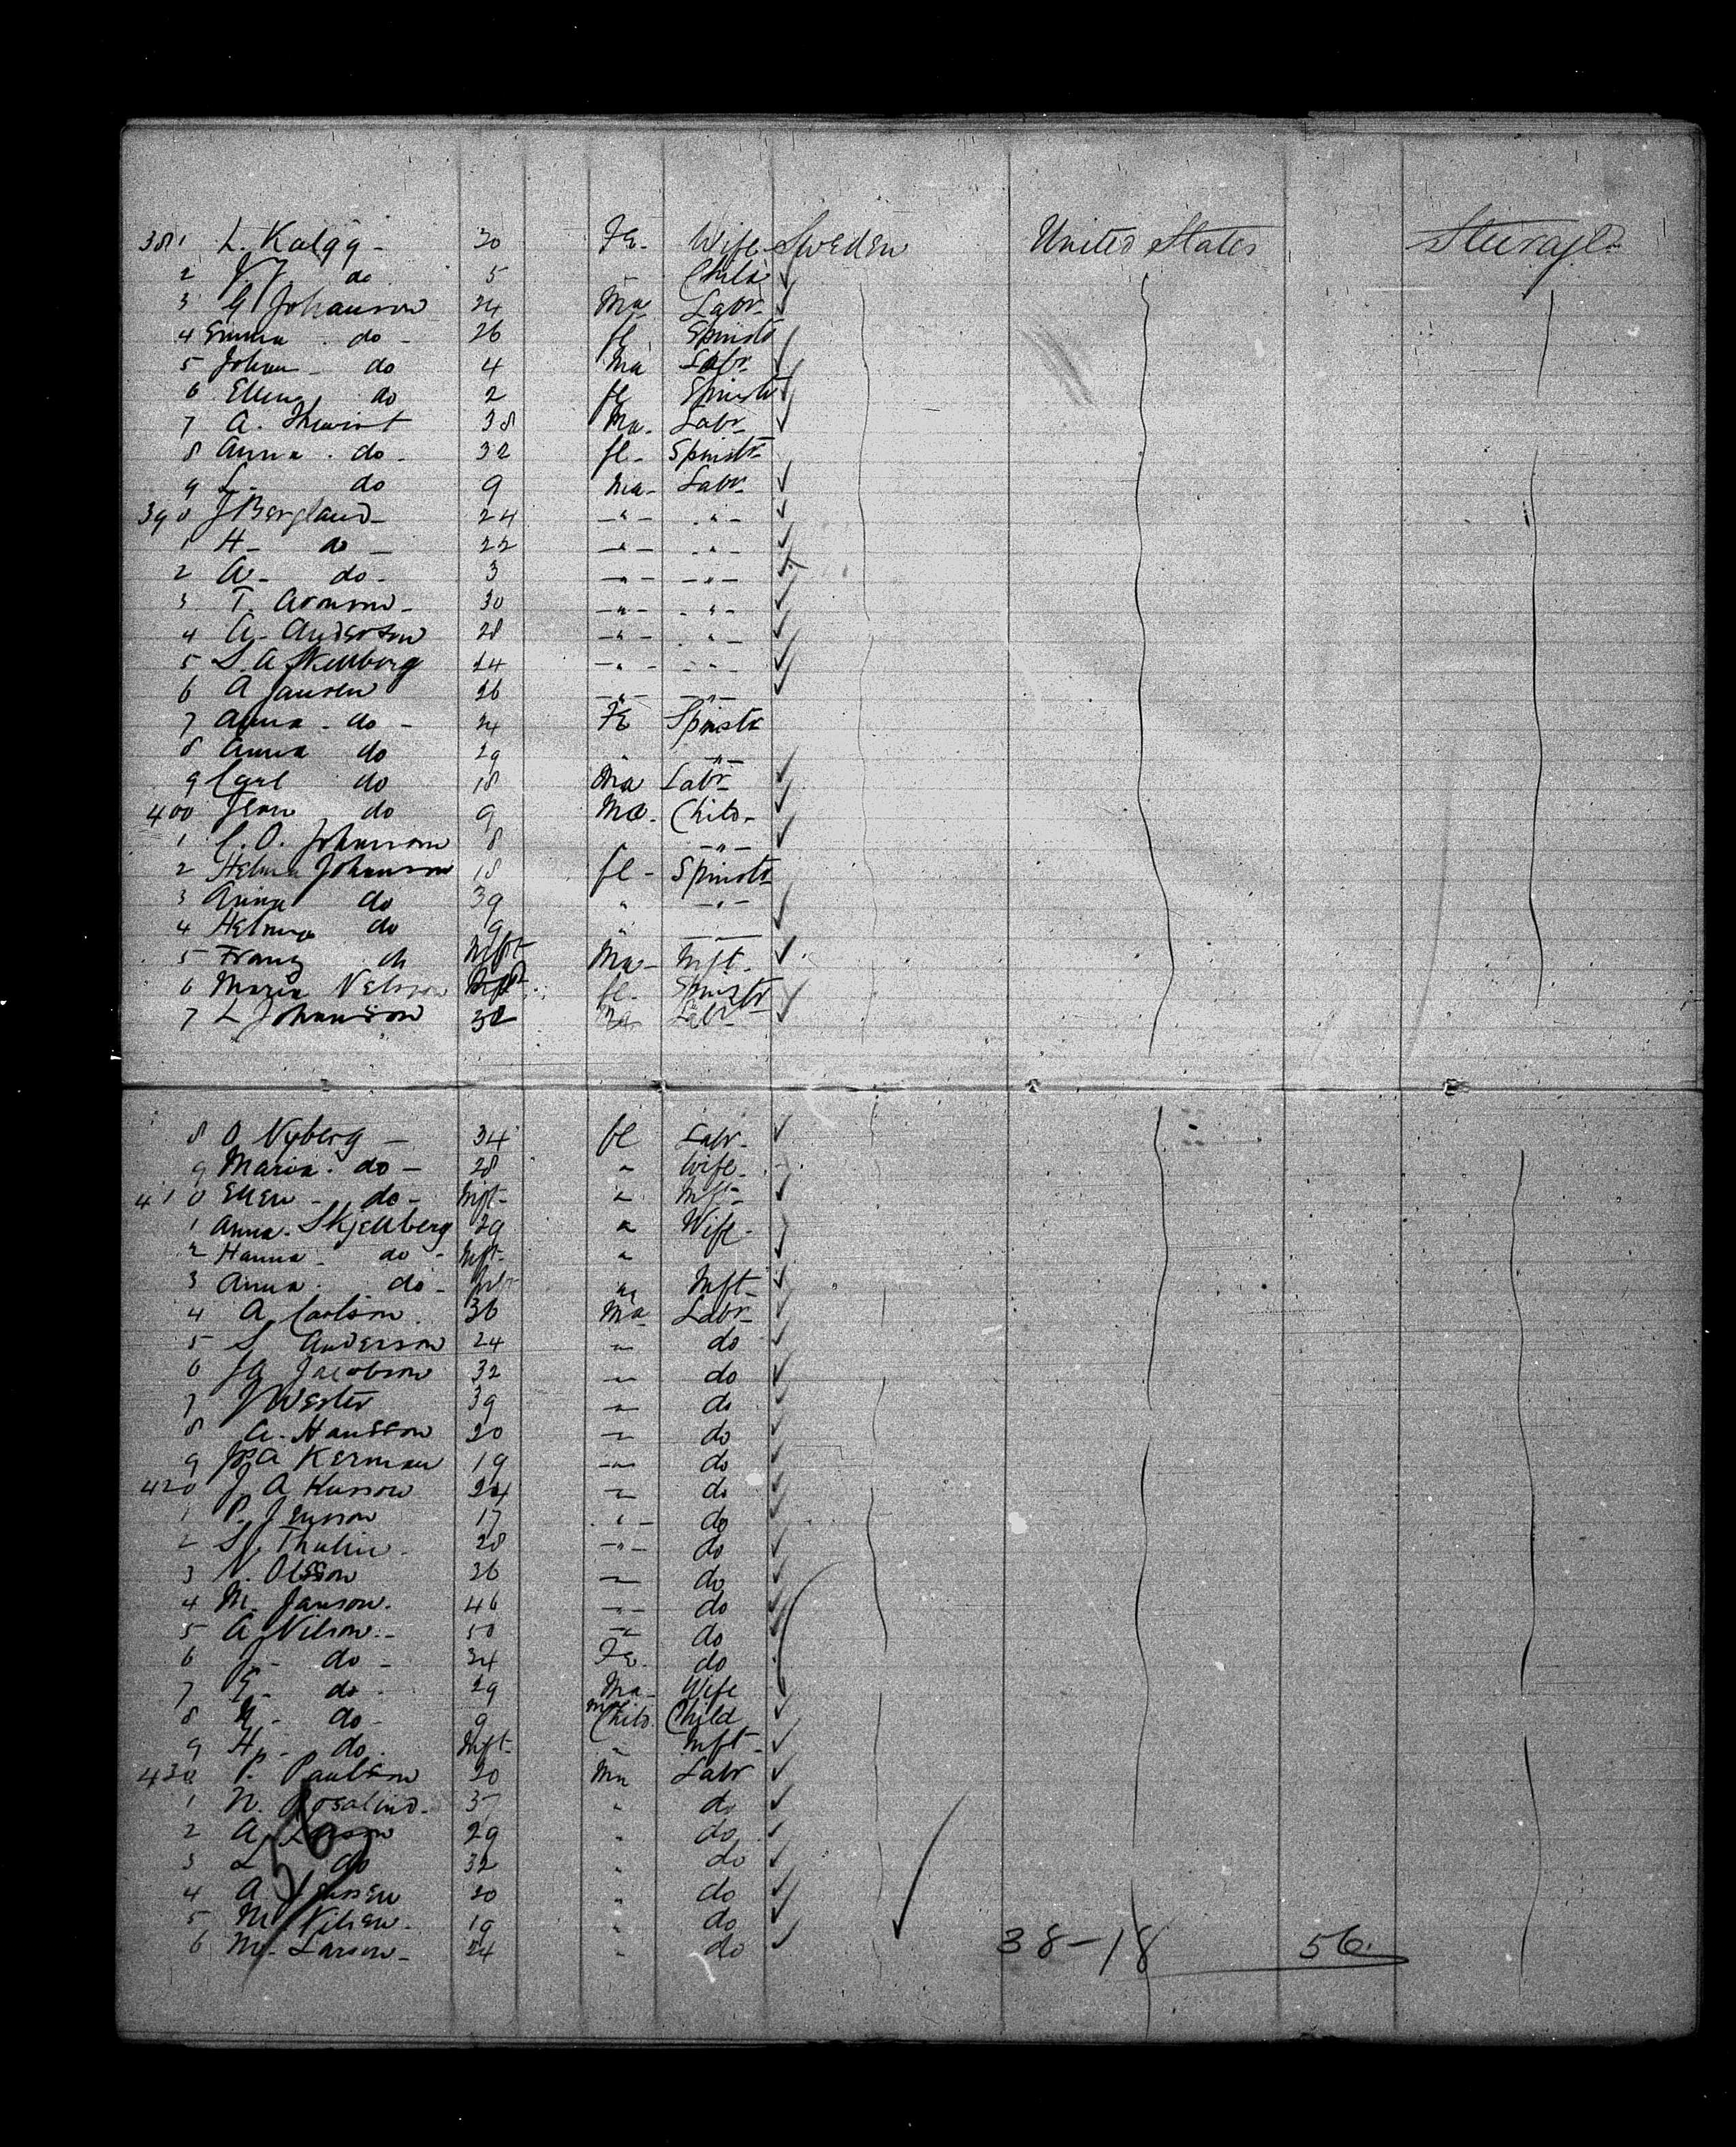 381 L. Kalgg - 30 Fe- Wife Sweden United States Steerage
2 J. J do 5 " Child
3 G Johanson 24 Ma- Labr-
4 Emma do - 26 fe Spinstr
5 Johan - do 4 Ma Labr
6 Ellen do 2 fe Spinstr
7 A. 38 Ma- Labr
8 Anna . do - 32 fe- Spinstr
9 L- do 9 Ma- Labr
390 J Bergland - 24 -"- -"-
1 H- do - 22 -"- -"-
2 A- do - 3 -"- -"-
3 T. Aronson - 30 -"- -"-
4 A- Anderson 28 -"- -"-
5 S. A Skellberg 24 -"- -"-
6 A Jansen 26 -"- -"-
7 Anna - do - 24 Fe Spinstr
8 Anna do 29 " -"-
9 Carl do 18 Ma Labr
400 do 9 Ma- Child-
1 C. O. Johanson 8 -"-
2 Helma Johanson 18 fe - Spinstr
3 Anna do 39 " -"-
4 Helma do 9 "
5 Franz do Inft Ma- Inft-
6 Maria Nelson fe- Spinstr
7 L Johanson 32 Ma Labr
8 O Nyberg - 34 fe Labr-
9 Maria - do - 28 " Wife-
410 Ellen - do - Inft- " Inft-
1 Anna - Skjellberg 29 " Wife-
2 Hanna - do - Inft- "
3 Anna - do - Inft " Inft-
4 A. Carlson 36 Ma Labr-
5 S Anderson 24 " do
6 Jacobson 32 " do
7 J Wester 39 " do
8 A. Hansson 20 " do
9 A Kerman 19 " do
420 J A 24 " do
1 P. Jensson 17 " do
2 S. Thulin - 28 " do
3 N. Olsson 26 " do
4 M. Janson. 46 " do
5 A Nilson - 50 " do
6 J- do - 34 Fe- do
7 do 29 Ma- Wife
8 N- do - 9 Male Child Child
9 H- do Inft- " Inft-
430 P. Paulson 20 Ma Labr
1 N. Rosalind - 37 " do
2 A Larson 29 " do
3 L do 32 " do
4 A Jensen 20 " do
5 M. Nilsen - 19 " do
6 M- Larson - 24 " do
56
38-18 56.